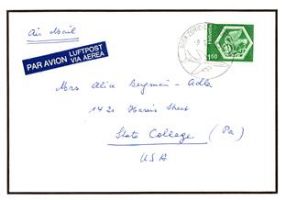 Air Mail
PAR AVION LUFTPOST
VIA AEREA
150
Mrs Alice Bergman - Adla
1421 Harris Street
State College (Pa)
USA